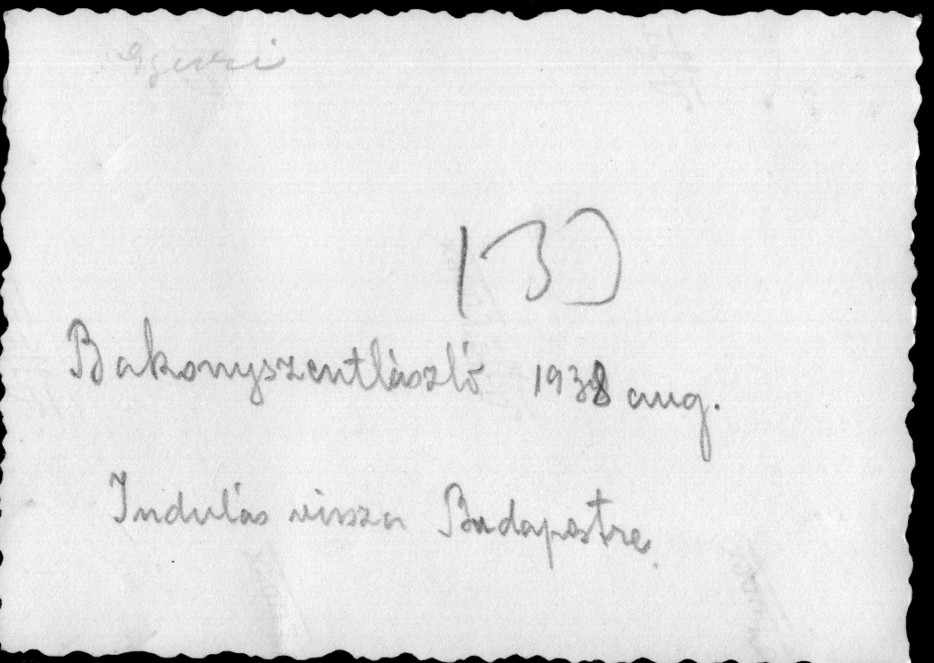 Bakonyszentlászló 1938 aug.
Indulás vissza Budapestre.